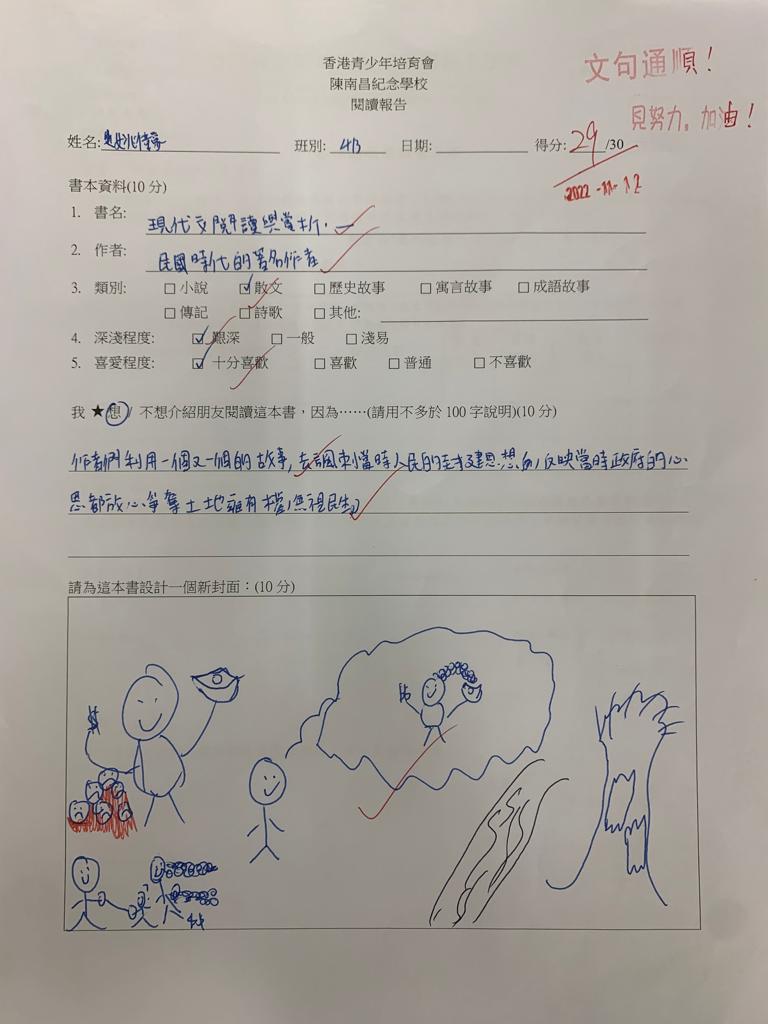 香港青少年培育會
陳南昌紀念學校
閱讀報告
文句通順！
見努力。加油！
姓名: 班別: 4B 日期: 得分: 29/30
2022-11-12
書本資料(10 分)
1. 書名: 現代文閱讀與賞析·一
2. 作者: 民國時代的著名作者
3. 類別: □ 小說 ☑ 散文 □ 歷史故事 □ 寓言故事 □ 成語故事
□ 傳記 □ 詩歌 □ 其他:
4. 深淺程度: ☑ 艱深 □ 一般 □ 淺易
5. 喜愛程度: ☑ 十分喜歡 □ 喜歡 □ 普通 □ 不喜歡
我 ★想 / 不想介紹朋友閱讀這本書，因為……(請用不多於 100 字說明)(10 分)
作者們利用一個又一個的故事，去諷刺當時人民的封建思想，反映當時政府的心
思都放心爭奪土地擁有權，無視民生。
請為這本書設計一個新封面：(10 分)
$